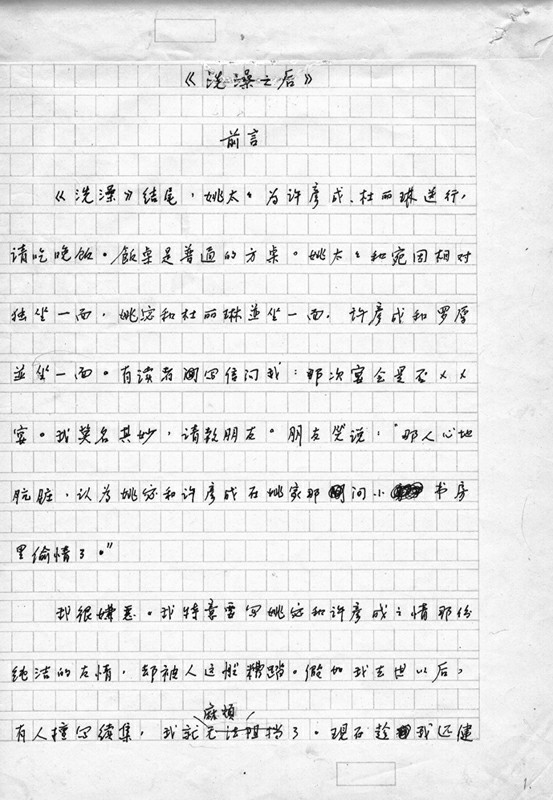 《洗澡之后》
前言
《洗澡》结尾,姚太〻为许彦成、杜丽琳送行,
请吃晚飯。飯桌是普通的方桌。姚太〻和宛因相对
独坐一面,姚宓和杜丽琳並坐一面,许彦成和罗厚
並坐一面。有读者写信问我:那次宴会是否××
宴。我莫名其妙,请教朋友。朋友笑说:“那人心地
肮脏,认为姚宓和许彦成在姚家那间小书房
里偷情了。”
我很嫌恶。我特意要写姚宓和许彦成之情那份
纯洁的友情,却被人这般糟蹋。假如我去世以后,
有人擅写续集,我就麻煩了。现在趁我还健
1.